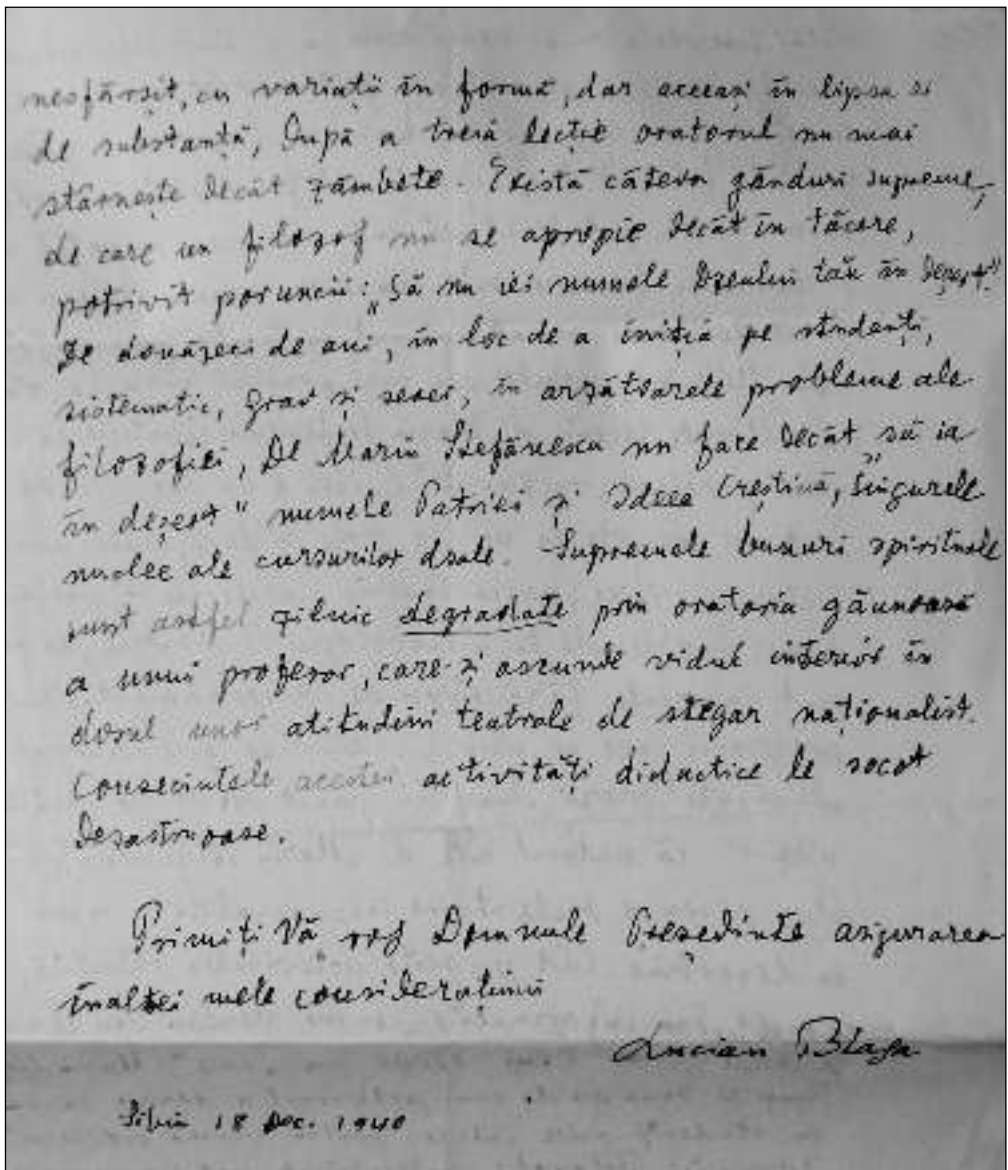 nesfârșit, cu variații în formă, dar aceeași în lipsa ei
de substanță, După a treia lecție oratorul nu mai
stârnește decât zâmbete. Există câteva gânduri supreme,
de care un filozof nu se apropie decât în tăcere,
potrivit poruncii: „Să nu iei numele Dzeului tău în deșert."
De douăzeci de ani, în loc de a iniția pe studenți,
sistematic, grav și sever, în arzătoarele probleme ale
filozofiei, Dl Marin Ștefănescu nu face decât „să ia
în deșert" numele Patriei și Ideea Creștină, singurele
nuclee ale cursurilor dsale. Supremele bunuri spirituale
sunt astfel zilnic degradate prin oratoria găunoasă
a unui profesor, care-și ascunde vidul interior în
dosul unor atitudini teatrale de stegar naționalist.
Consecințele acestei activități didactice le socot
desastruoase.
Primiți Vă rog Domnule Președinte asigurarea
înaltei mele considerațiuni
Lucian Blaga
Sibiu 18 Dec. 1940